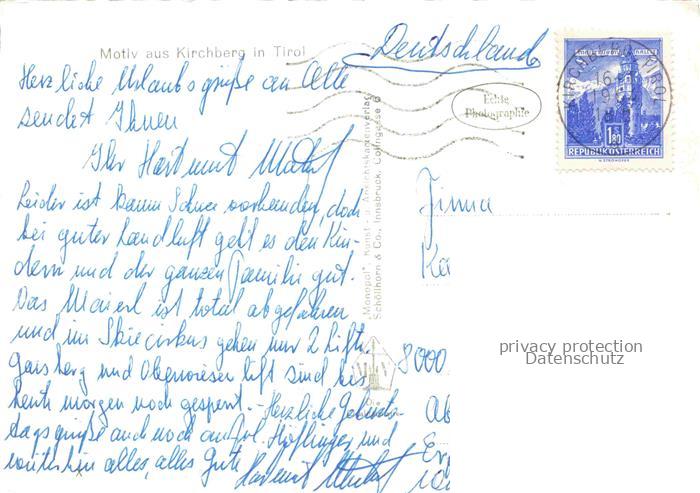 Motiv aus Kirchberg in Tirol
Deutschland
Herzliche Urlaubsgrüße an Alle
sendet Ihnen
Ihr Hartmut
Leider ist kaum Schnee vorhanden, doch
bei guter Landluft geht es den Kin-
dern und der ganzen Familie gut.
Das Maierl ist total abgefahren
und im Skicirkus gehen nur 2 Lifte.
Gaisberg und Obwieser lift sind bis
heute morgen noch gesperrt. - Herzliche Geburts-
tagsgrüße auch noch an Frl. Höflinger und
weiterhin alles, alles Gute
Hartmut
"Monopol" Kunst- u. Ansichtskartenverlag
Schöllhorn & Co., Innsbruck,
Echte
Photographie
KIRCHBERG TIROL
1.80
REPUBLIK ÖSTERREICH
Firma
8000
privacy protection
Datenschutz